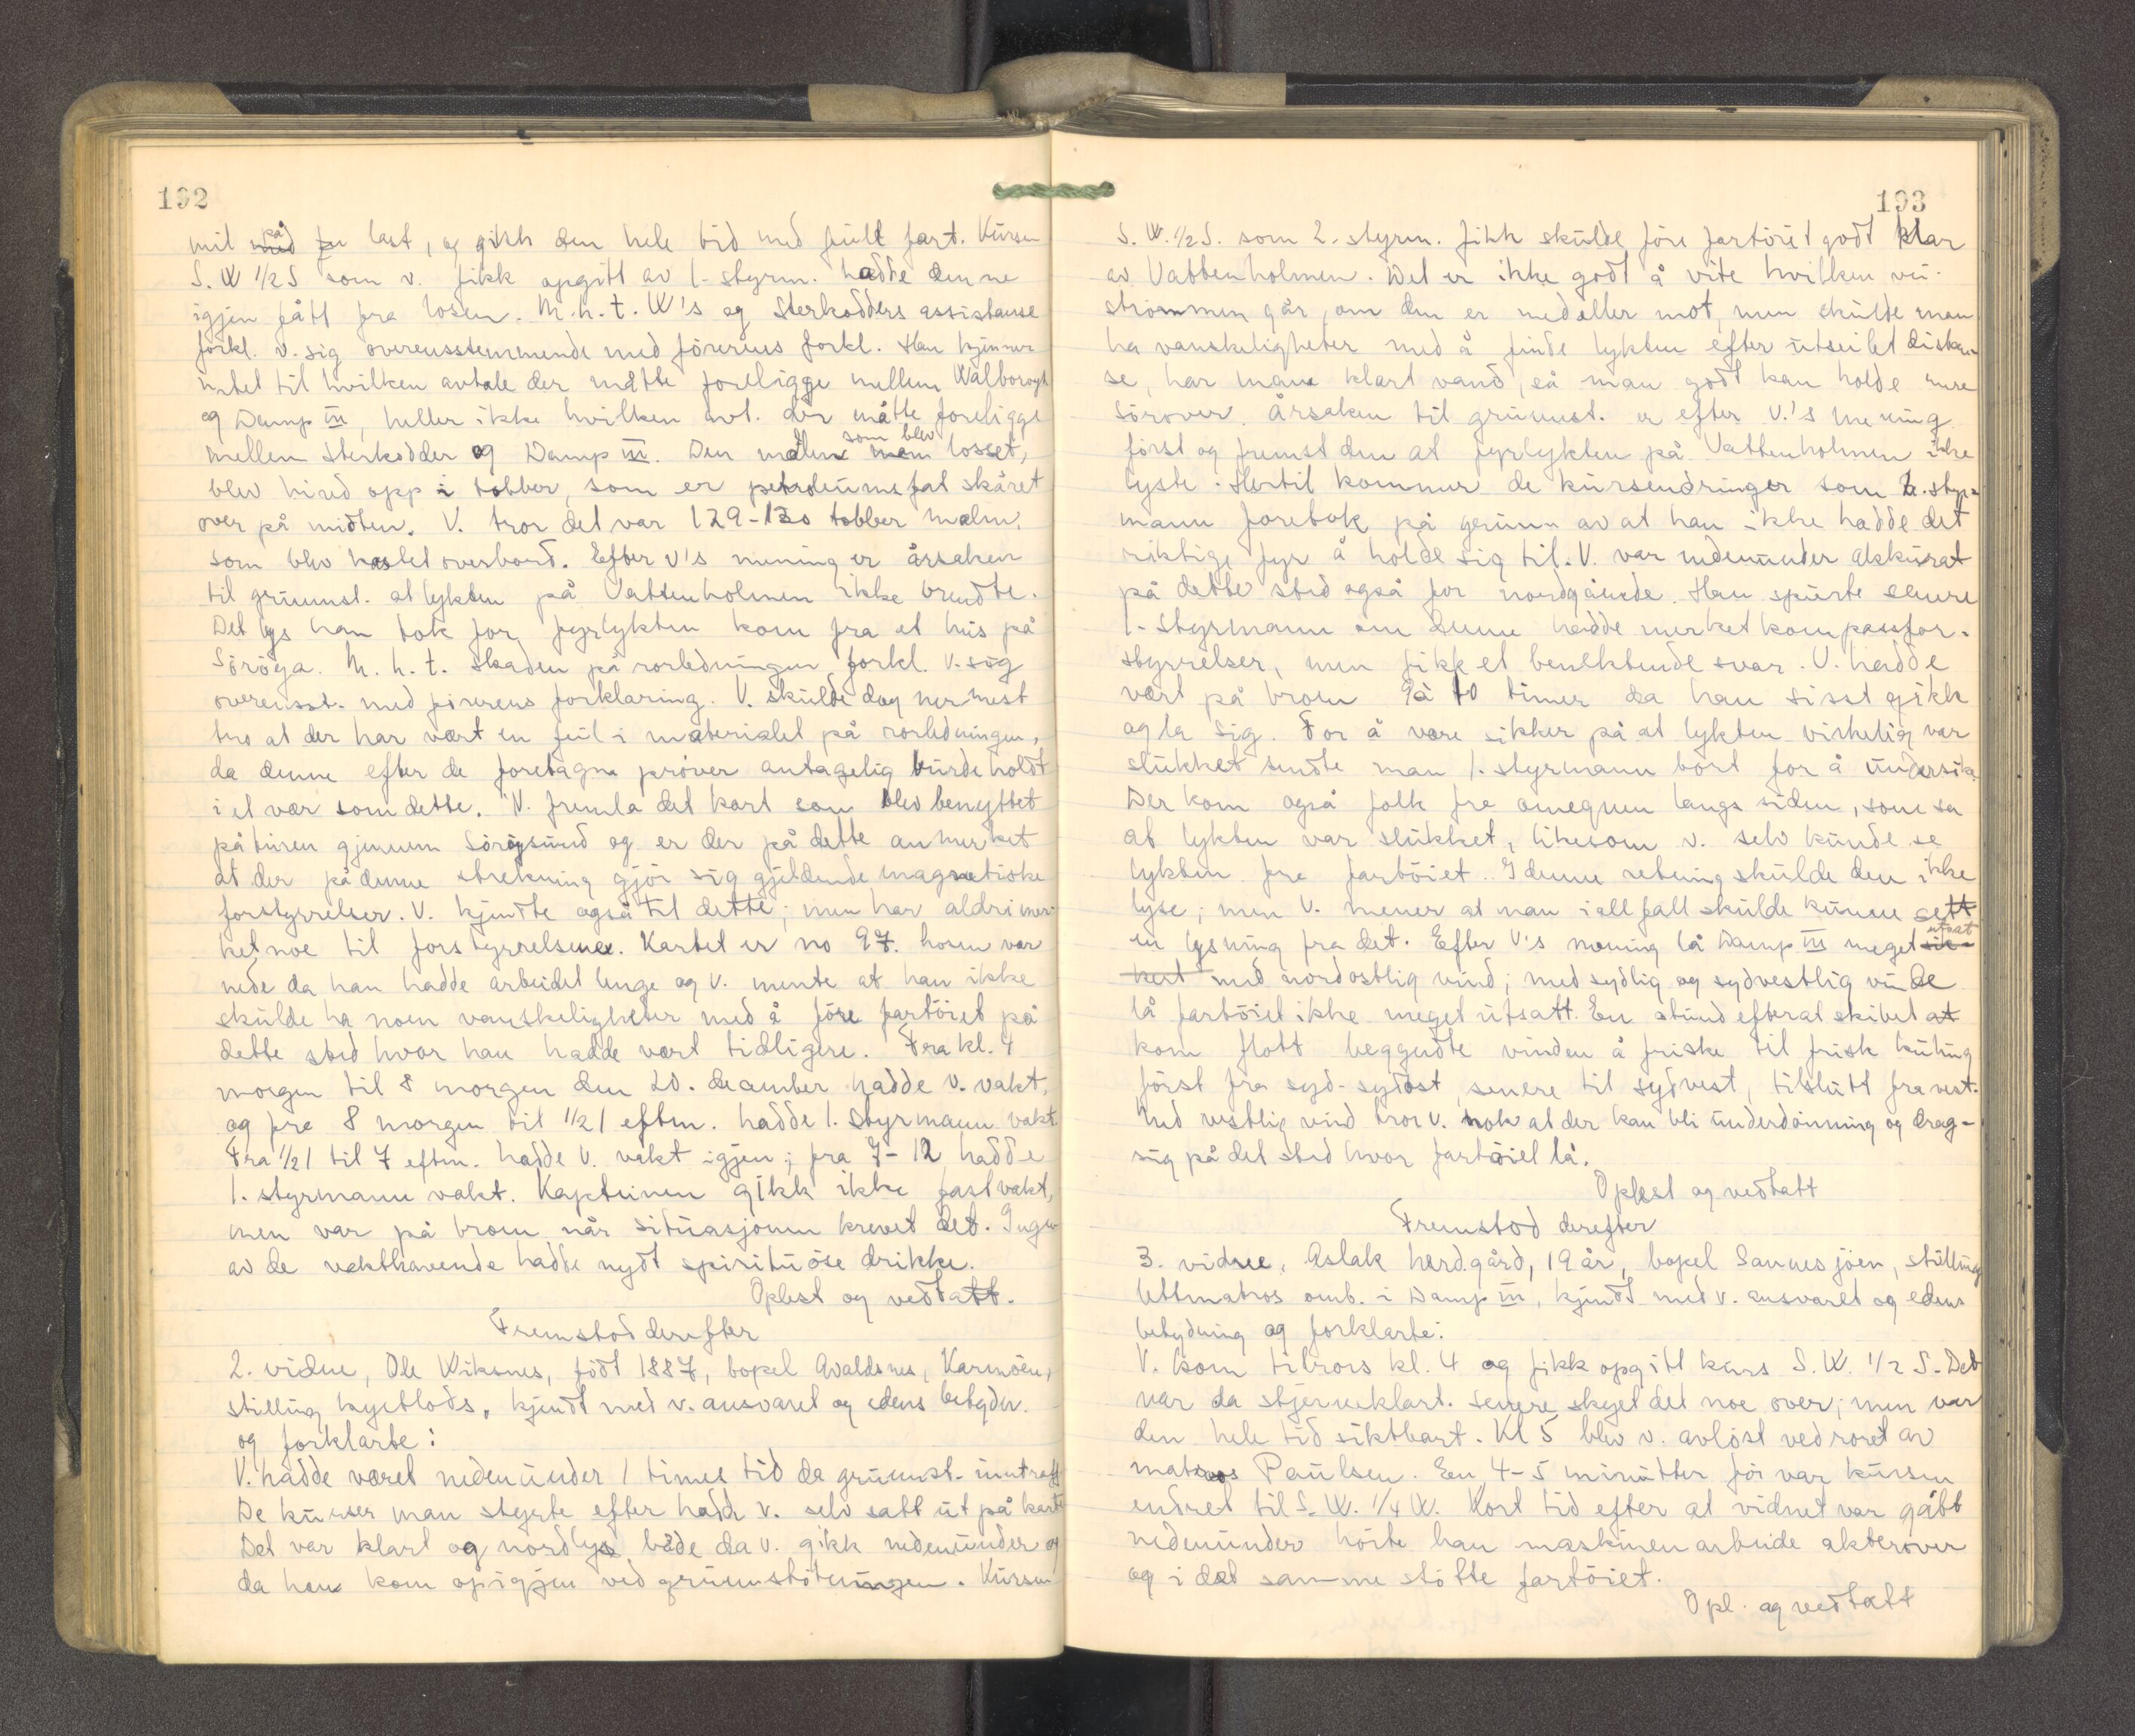 192
mil på last, og gikk den hele tid med full fart. Kursen
S. W 1/2 S som v. fikk opgitt av 1-styrm. hadde denne
igjen fått fra losen. M.h.t. W's og Sterkodders assistanse
forkl. v. sig overensstemmende med förerens forkl. Han kjenner
intet til hvilken avtale der måtte foreligge mellem Walborogh
og Damp III, heller ikke hvilken avt. der måtte foreligge
mellem Sterkodder og Damp III. Den malm som blev losset,
blev hived opp i tobber, som er petroleumsfat skåret
over på midten. V. tror det var 129-130 tobber malm
som blev kastet overbord. Efter v's mening er årsaken
til grunnst. at lykten på Vattenholmen ikke brendte.
Det lys han tok for fyrlykten kom fra et hus på
Söröya. M.h.t. skaden på rorledningen forkl. v. sig
overensst. med förerens forklaring. V. skulde dog nermest
tro at der har vært en feil i materialet på rorledningen,
da denne efter de foretagne pröver antagelig burde holdt
i et vær som dette. V. fremla det kart som blev benyttet
på turen gjennem Söröysund og er der på dette anmerket
at der på denne strekning gjör sig gjeldende magnetiske
forstyrrelser. V. kjendte også til dette; men har aldri mer-
ket noe til forstyrrelsene. Kartet er no 97. losen var
nede da han hadde arbeidet lenge og v. mente at han ikke
skulde ha noen vanskeligheter med å före fartöiet på
dette sted hvor han hadde vært tidligere. Fra kl. 4
morgen til 8 morgen den 20. december hadde v. vakt,
og fra 8 morgen til 1/2 1 eftm. hadde 1. Styrmann vakt.
Fra 1/2 1 til 7 eftm. hadde V. vakt igjen; fra 7-12 hadde
1. styrmann vakt. Kapteinen gikk ikke fast vakt,
men var på broen når situasjonen krevet det. Ingen
av de vakthavende hadde nydt spirituöse drikke.
Oplest og vedtatt.
Fremstod derefter
2. vidne, Ole Wiksnes, födt 1887, bopel Avaldsnes, Karmöen,
stilling kystlods, kjendt med v. ansvaret og edens betydn.
og forklarte:
V. hadde været nedenunder 1 times tid da grunnst. inntraff
De kurser man styrte efter hadde v. selv satt ut på kart
Det var klart og nordlys både da v. gikk nedenunder og
da han kom op igjen ved grunnstötningen. Kursen
193
S.W. 1/2 S. som 2. styrm. fikk skulde före fartöiet godt klar
av Vattenholmen. Det er ikke godt å vite hvilken vei
strömmen går, om den er med eller mot, men skulde man
ha vanskeligheter med å finde lykten efter utseilet distan-
se, har man klart vand, så man godt kan holde mere
sörover. Årsaken til grunnst. er efter v.'s mening
först og fremst den at fyrlykten på Vattenholmen ikke
lyste. Hertil kommer de kursendringer som 2. styr-
mann foretok på grunn av at han ikke hadde det
riktige fyr å holde sig til. V. var nedenunder akkurat
på dette sted også for nordgående. Han spurte senere
1. Styrmann om denne hadde merket kompassfor-
styrrelser, men fikk et benektende svar. V. hadde
vært på broen 9 à 10 timer da han sisst gikk
og la sig. For å være sikker på at lykten virkelig var
slukket sendte man 1. styrmann bort for å undersöke
Der kom også folk fra omegnen langs siden, som sa
at lykten var slukket, likesom v. selv kunde se
lykten fra fartöiet. I denne retning skulde den ikke
lyse; men v. mener at man i all fall skulde kunne sett
en lysning fra det. Efter V's mening lå Damp III meget utsat
med nordostlig vind; med sydlig og sydvestlig vinde
lå fartöiet ikke meget utsatt. En stund efterat skibet
kom flott begyndte vinden å friske til frisk kuling
först fra syd-sydost, senere til sydvest, tilslutt fra vest.
Med vestlig vind tror v. nok at der kan bli underdönning og drag-
sug på det sted hvor fartöiet lå.
Oplest og vedtatt
Fremstod derefter
3. vidne, Aslak herdgård, 19 år, bopel Sannesjöen, stilling
lettmatros omb. i Damp III, kjendt med v. ansvaret og edens
betydning og forklarte:
V. kom tilrors kl. 4 og fikk opgitt kurs S.W. 1/2 S. Det
var da stjerneklart. Senere skyet det noe over; men var
den hele tid siktbart. Kl 5 blev v. avlöst ved roret av
matros Paulsen. En 4-5 minutter för var kursen
endret til S.W. 1/4 W. Kort tid efter at vidnet var gått
nedenunder hörte han maskinen arbeide akterover
og i det samme stötte fartöiet.
Opl. og vedtatt